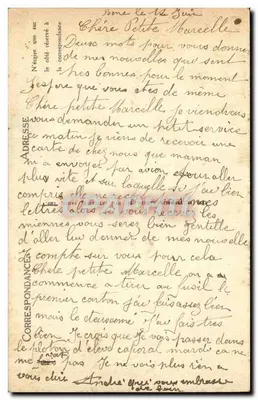 le 12 Juin
Chère Petite Marcelle
Deux mots pour vous donner
de mes nouvelles qui sont
très bonnes pour le moment
J'espère que vous êtes de même
Chère petite Marcelle je viendrais
vous demander un petit service
ce matin je viens de recevoir une
carte de chez nous que maman
m'a envoyer par avion pour aller
plus vite et sur laquelle j'ai bien
compris
lettres alors
miennes vous serez bien gentille
d'aller leur donner de mes nouvelles
Je compte sur vous pour cela
Chère petite Marcelle on a
commence a tirer au fusil le
premier carton j'ai eu assez bien
mais le deuxième j'ai fais très
bien Je crois que je vais passer dans
le peloton d'élève caporal mardi ca ne
pas Je ne vois plus rien a
vous dire André qui vous embrasse
de loin
CORRESPONDANCE
ADRESSE
N'écrire que sur
le côté réservé à
la correspondance